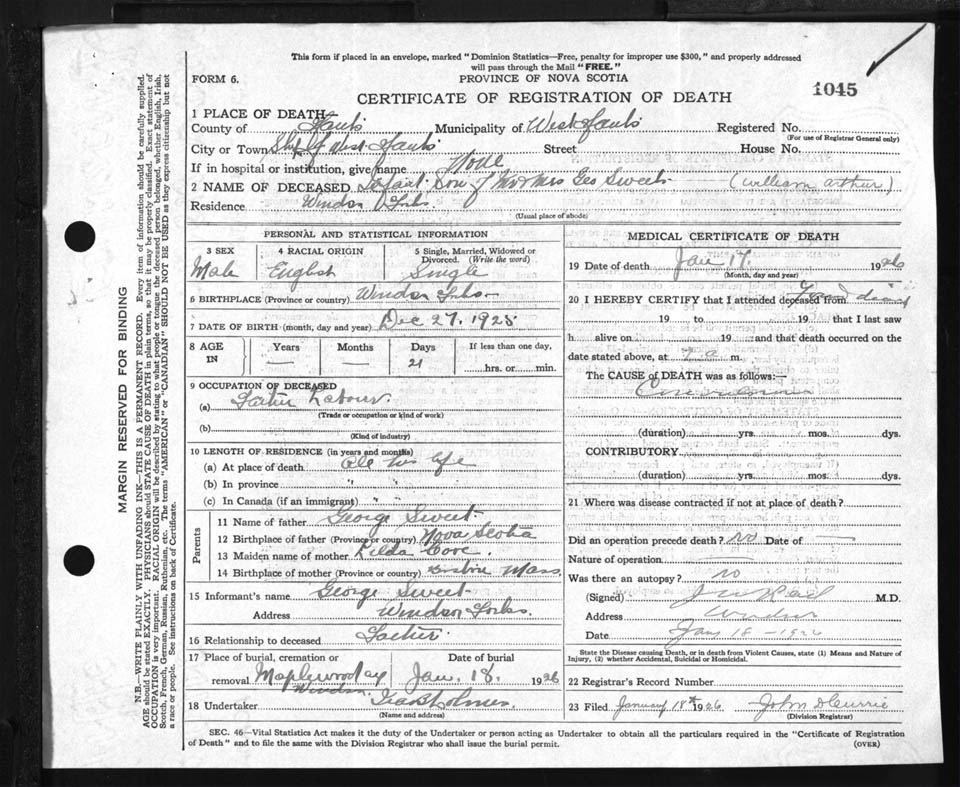 This form if placed in an envelope, marked "Dominion Statistics—Free, penalty for improper use $300," and properly addressed
will pass through the Mail "FREE."
FORM 6.
PROVINCE OF NOVA SCOTIA
1045
CERTIFICATE OF REGISTRATION OF DEATH
1 PLACE OF DEATH
County of Hants Municipality of West Hants Registered No.
(For use of Registrar General only)
City or Town West Hants Street House No.
If in hospital or institution, give name None
2 NAME OF DECEASED Infant Son of Mr Mrs Geo Sweet (William Arthur)
Residence Windsor Forks
(Usual place of abode)
PERSONAL AND STATISTICAL INFORMATION
3 SEX 4 RACIAL ORIGIN 5 Single, Married, Widowed or
Divorced. (Write the word)
Male English Single
6 BIRTHPLACE (Province or country) Windsor Forks
7 DATE OF BIRTH (month, day and year) Dec 27, 1925
8 AGE IN Years Months Days If less than one day,
— — 21 hrs. or min.
9 OCCUPATION OF DECEASED
(a) Father Labourer
(Trade or occupation or kind of work)
(b)
(Kind of industry)
10 LENGTH OF RESIDENCE (in years and months)
(a) At place of death all his life
(b) In province "
(c) In Canada (if an immigrant) "
Parents
11 Name of father George Sweet
12 Birthplace of father (Province or country) Nova Scotia
13 Maiden name of mother
14 Birthplace of mother (Province or country) Mass
15 Informant's name George Sweet
Address Windsor Forks.
16 Relationship to deceased Father
17 Place of burial, cremation or Date of burial
removal Maplewood Jan. 18. 1926
Windsor
18 Undertaker Holmes
(Name and address)
MEDICAL CERTIFICATE OF DEATH
19 Date of death Jan 17. 1926
(Month, day and year)
20 I HEREBY CERTIFY that I attended deceased from
19 to 19 that I last saw
h alive on 19 and that death occurred on the
date stated above, at 7 a m.
The CAUSE of DEATH was as follows:—
(duration) yrs. mos. dys.
CONTRIBUTORY
(duration) yrs. mos. dys.
21 Where was disease contracted if not at place of death?
Did an operation precede death? no Date of —
Nature of operation —
Was there an autopsy? no
(Signed) M.D.
Address Windsor
Date Jany 18 - 1926
State the Disease causing Death, or in death from Violent Causes, state (1) Means and Nature of
Injury, (2) whether Accidental, Suicidal or Homicidal.
22 Registrar's Record Number
23 Filed January 18th 1926 John D Currie
(Division Registrar)
SEC. 46—Vital Statistics Act makes it the duty of the Undertaker or person acting as Undertaker to obtain all the particulars required in the "Certificate of Registration
of Death" and to file the same with the Division Registrar who shall issue the burial permit.
(OVER)
MARGIN RESERVED FOR BINDING
N.B.—WRITE PLAINLY WITH UNFADING INK—THIS IS A PERMANENT RECORD. Every item of information should be carefully supplied.
AGE should be stated EXACTLY. PHYSICIANS should STATE CAUSE OF DEATH in plain terms, so that it may be properly classified. Exact statement of
OCCUPATION is very important. RACIAL ORIGIN will be described by stating to what people or tongue the deceased person belonged, whether English, Irish,
Scotch, French, German, Russian, Ruthenian, etc. The terms "AMERICAN" or "CANADIAN" SHOULD NOT BE USED as they express citizenship but not
a race or people. See instructions on back of Certificate.